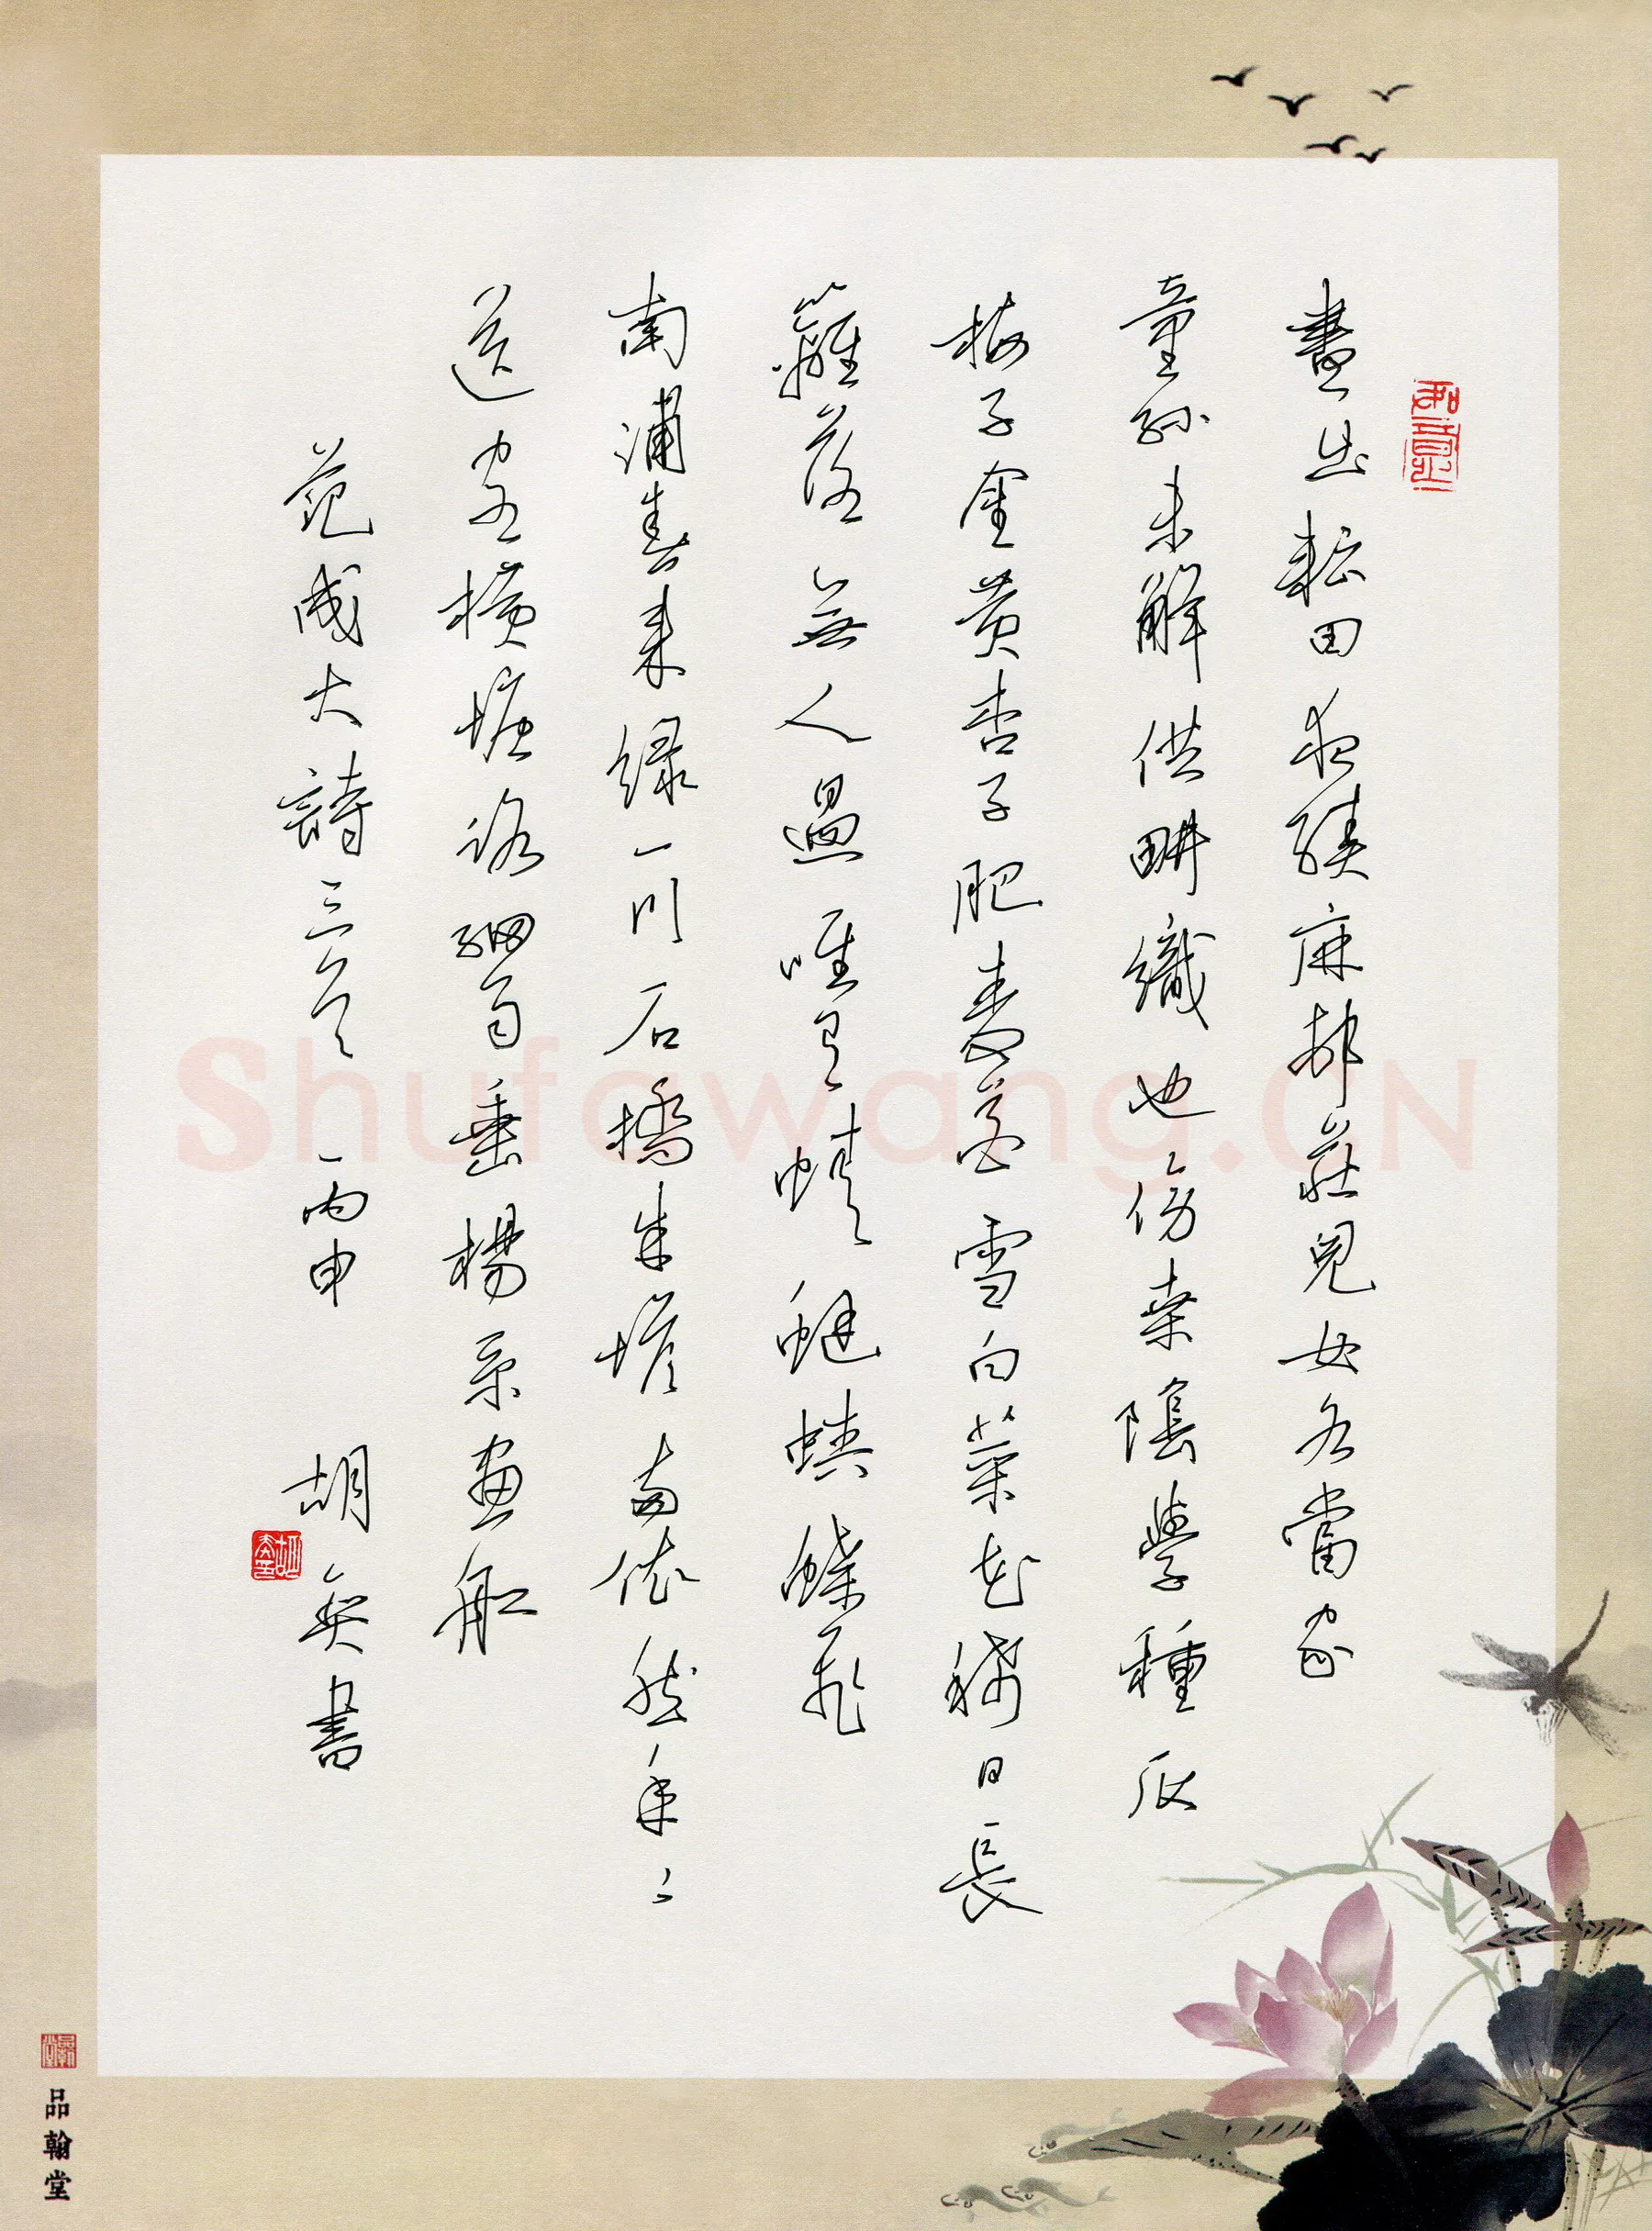 如意
晝出耘田夜績麻邨莊兒女各當家
童孫未解供畊織也傍桑陰學種瓜
梅子金黃杏子肥麥花雪白菜花稀日長
籬落無人過唯有蜻蜓蛺蝶飛
南浦春來綠一川石橋朱塔兩依然年〻
送客橫塘路細雨垂楊系畫船
范成大詩三首 丙申 胡 書
品翰堂
Shufawang.CN